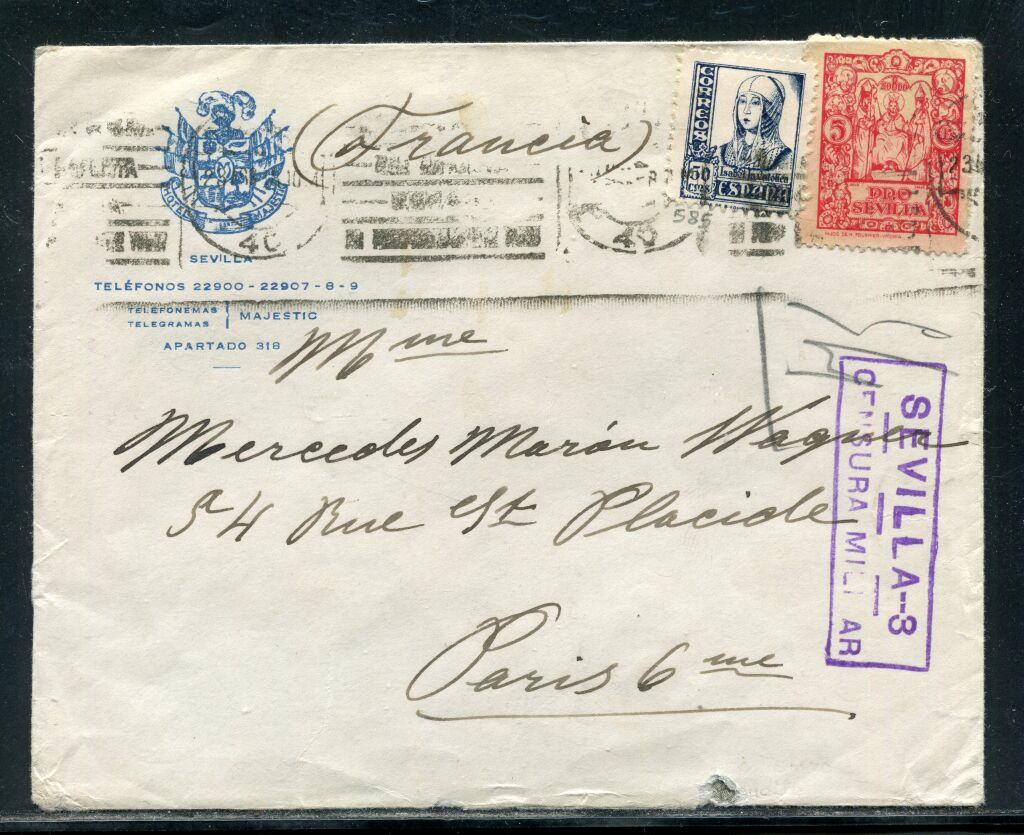 (Francia)
CORREOS
50
CTS
Isabel la Católica
ESPAÑA
5
PRO
SEVILLA
40
40
585
SEVILLA
TELÉFONOS 22900 - 22907 - 8 - 9
TELEFONEMAS
TELEGRAMAS
MAJESTIC
APARTADO 318
Mme
Mercedes Marón Wagner
54 Rue St Placide
Paris 6me
SEVILLA--3
CENSURA MILITAR